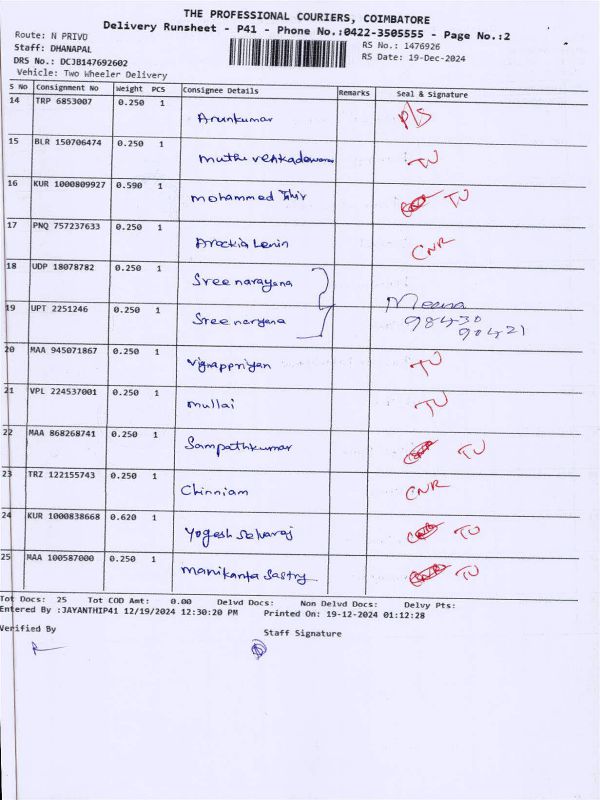 THE PROFESSIONAL COURIERS, COIMBATORE
Delivery Runsheet - P41 - Phone No.:0422-3505555 - Page No.:2
Route: N PRIVO
RS No.: 1476926
Staff: DHANAPAL
RS Date: 19-Dec-2024
DRS No.: DCJB147692602
Vehicle: Two Wheeler Delivery
S No Consignment No Weight PCS Consignee Details Remarks Seal & Signature
14 TRP 6853007 0.250 1 Arunkumar P/S
15 BLR 150706474 0.250 1 TU
16 KUR 1000809927 0.590 1 Mohammed TU
17 PNQ 757237633 0.250 1 Arockia Lenin CNR
18 UDP 18078782 0.250 1 Sree narayana
Meena
19 UPT 2251246 0.250 1 Sree naryana 98430
90421
20 MAA 945071867 0.250 1 Vignappriyan TU
21 VPL 224537001 0.250 1 mullai TU
22 MAA 868268741 0.250 1 Sampathkumar TU
23 TRZ 122155743 0.250 1 Chinniam CNR
24 KUR 1000838668 0.620 1 Yogesh Selvaraj TU
25 MAA 100587000 0.250 1 Manikanta Sastry TU
Tot Docs: 25 Tot COD Amt: 0.00 Delvd Docs: Non Delvd Docs: Delvy Pts:
Entered By :JAYANTHIP41 12/19/2024 12:30:20 PM Printed On: 19-12-2024 01:12:28
Verified By
Staff Signature